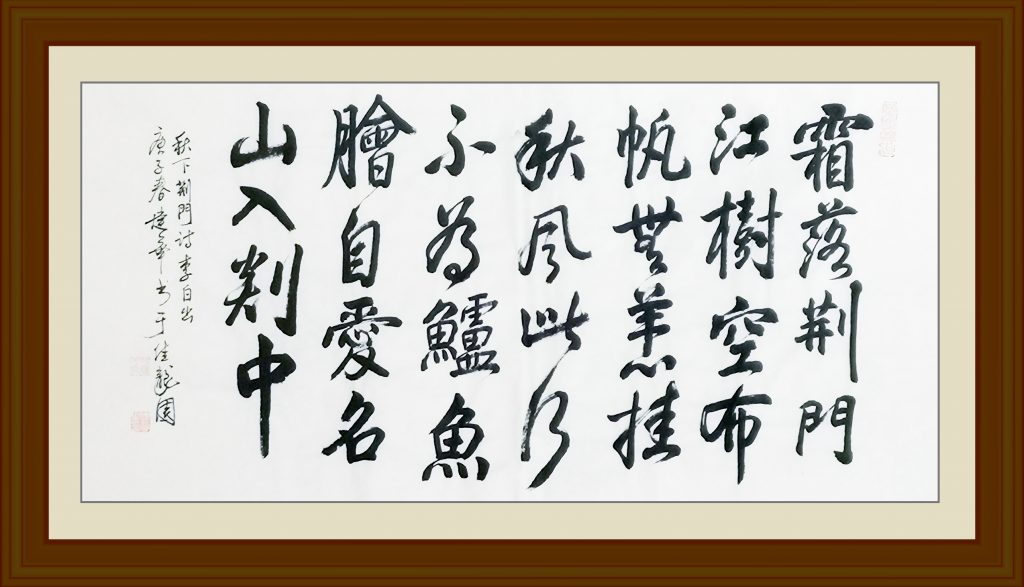 霜落荆門
江樹空布
帆無恙挂
秋风此行
不為鱸魚
膾自愛名
山入剡中
秋下荆門诗李白出
庚子春建華书于佳龍園